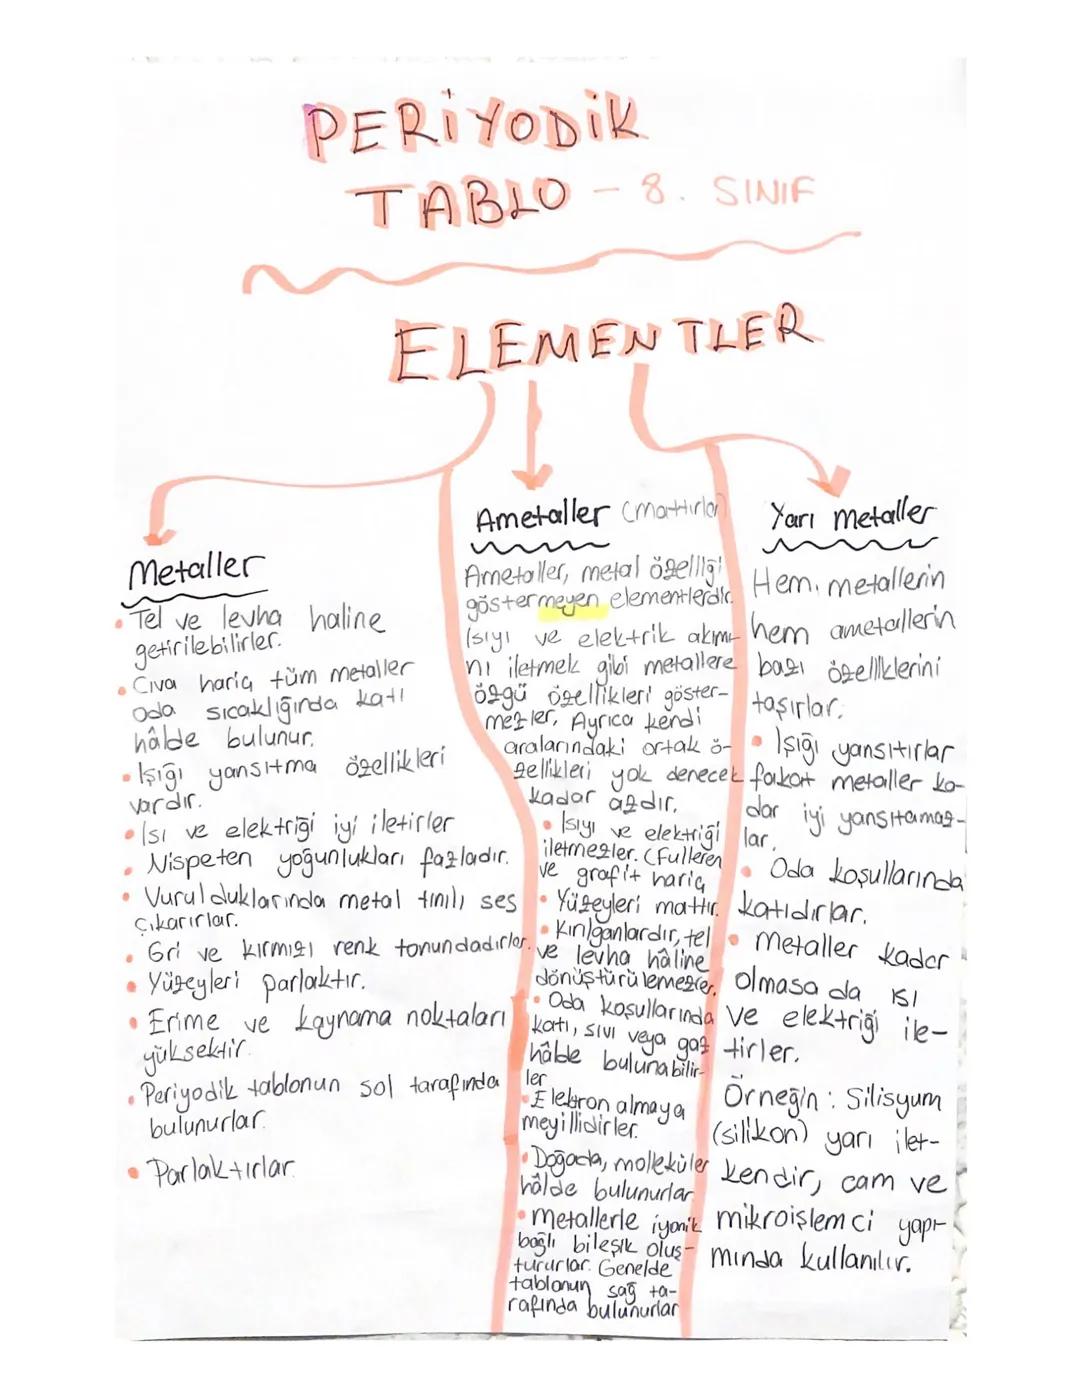 PERİYODİK
TABLO - 8. SINIF
ELEMENTLER
Metaller
• Tel ve levha haline
getirilebilirler.
• Cıva hariç tüm metaller
oda sıcaklığında katı
hâlde bulunur.
• Işığı yansıtma özellikleri
vardır.
• Isı ve elektriği iyi iletirler
• Nispeten yoğunlukları fazladır.
• Vurulduklarında metal tınılı ses
çıkarırlar.
• Gri ve kırmızı renk tonundadırlar.
• Yüzeyleri parlaktır.
• Erime ve kaynama noktaları
yüksektir.
• Periyodik tablonun sol tarafında
bulunurlar.
• Parlaktırlar.
Ametaller (mattırlar)
Ametaller, metal özelliği
göstermeyen elementlerdir.
Isıyı ve elektrik akımı-
nı iletmek gibi metallere
özgü özellikleri göster-
mezler, Ayrıca kendi
aralarındaki ortak ö-
zellikleri yok denecek
kadar azdır.
• Isıyı ve elektriği
iletmezler. (Fulleren
ve grafit hariç
• Yüzeyleri mattır.
• Kırılganlardır, tel
ve levha hâline
dönüştürülemezler.
• Oda koşullarında
katı, sıvı veya gaz
hâlde bulunabilir-
ler
• Elektron almaya
meyillidirler.
• Doğada, molleküler
hâlde bulunurlar
• Metallerle iyonik
bağlı bileşik oluş-
tururlar. Genelde
tablonun sağ ta-
rafında bulunurlar
Yarı metaller
Hem, metallerin
hem ametallerin
bazı özelliklerini
taşırlar.
• Işığı yansıtırlar
fakat metaller ka-
dar iyi yansıtamaz-
lar.
• Oda koşullarında
katıdırlar.
• Metaller kadar
olmasa da ısı
ve elektriği ile-
tirler.
Örneğin: Silisyum
(silikon) yarı ilet-
kendir, cam ve
mikroişlemci yapı-
mında kullanılır.